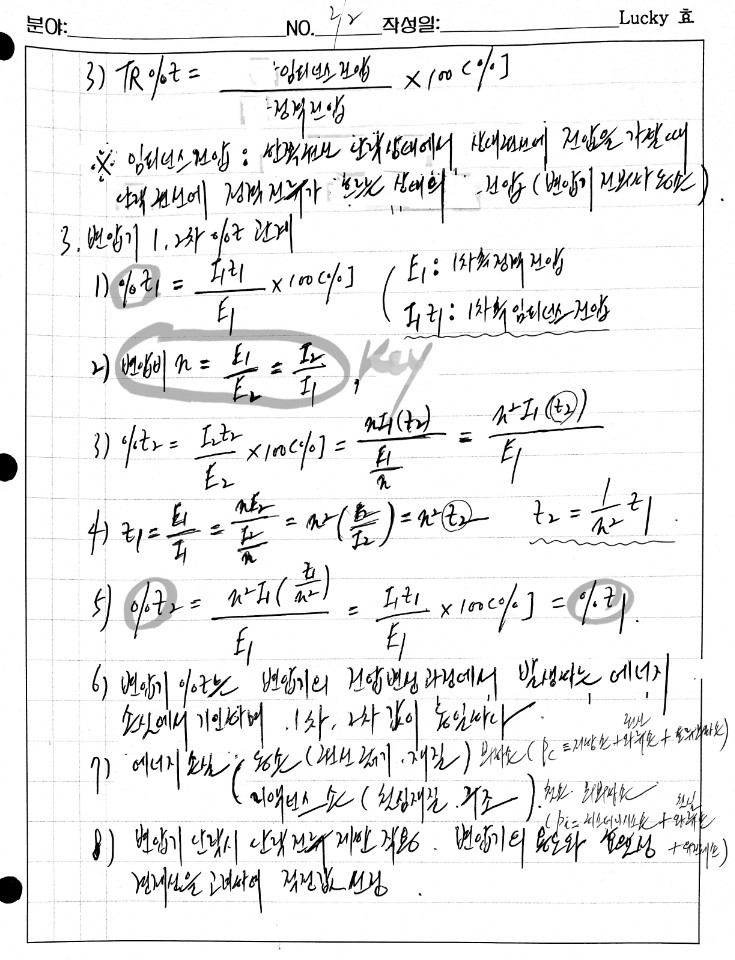 분야: NO. 2/2 작성일: Lucky 효
3) TR %Z = 임피던스전압 / 정격전압 × 100 [%]
※ 임피던스전압 : 한쪽권선 단락상태에서 상대권선에 전압을 가할때
단락권선에 정격전류가 흐르는 상태의 전압 (변압기 전부하 동손)
3. 변압기 1, 2차 %Z 관계
1) %Z1 = I1Z1 / E1 × 100 [%] ( E1 : 1차측정격전압
I1Z1 : 1차측임피던스전압
2) 변압비 n = E1 / E2 = I2 / I1 , Key
3) %Z2 = I2Z2 / E2 × 100 [%] = nI1(Z2) / (E1 / n) = n²I1(Z2) / E1
4) Z1 = E1 / I1 = nE2 / (I2 / n) = n² (E2 / I2) = n² Z2 Z2 = 1 / n² Z1
5) %Z2 = n²I1(Z1 / n²) / E1 = I1Z1 / E1 × 100 [%] = %Z1.
6) 변압기 %Z는 변압기의 전압변성과정에서 발생하는 에너지
손실에서 기인하며, 1차, 2차 값이 동일하다
7) 에너지 손실 ( 동손 (권선 굵기, 재질) 부하손 (Pc = 저항손 + 와류손 + 표유부하손)
권선
리액턴스 손 (철심재질, 구조) 철손 무부하손
철심
(Pi = 히스테리시스손 + 와류손
8) 변압기 단락시 단락전류 제한 작용. 변압기의 용도와 안전성 + 유전체손)
경제성을 고려하여 적정값 선정